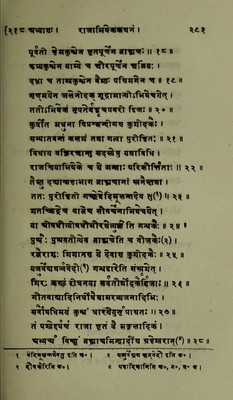 [२१८ अध्यायः । राजाभिषेककथनं । २८१
पूर्वतो हेमकुम्भेन घृतपूर्णेन ब्राह्मणः ॥ १८ ॥
रूप्यकुम्भेन याम्ये च क्षीरपूर्णेन क्षत्रियः ।
दध्ना च ताम्रकुम्भेन वैश्यः पश्चिमगेन च ॥ १९ ॥
मृण्मयेन जलेनोदक् शूद्रामात्योऽभिषेचयेत् ।
ततोऽभिषेकं नृपतेर्बह्वृचप्रवरो द्विजः ॥ २० ॥
कुर्वीत मधुना विप्रश्छन्दोगश्च कुशोदकैः ।
सम्पातवन्तं कलशं तथा गत्वा पुरोहितः ॥ २१ ॥
विधाय वह्निरक्षान्तु सदस्येषु यथाविधि ।
राजश्रियाभिषेके च ये मन्त्राः परिकीर्त्तिताः ॥ २२ ॥
तैस्तु दद्यान्महाभाग ब्राह्मणानां स्वनैस्तथा ।
ततः पुरोहितो गच्छेद्वेदिमूलन्तदेव तु(१) ॥ २३ ॥
शतच्छिद्रेण पात्रेण सौवर्णेनाभिषेचयेत् ।
या ओषधीत्योषधीभीरथेत्युक्त्वेति गन्धकैः ॥ २४ ॥
पुष्पैः पुष्पवतीत्येव ब्राह्मणेति च वीजकैः(२) ।
रत्नैराशुः शिशानश्च ये देवाश्च कुशोदकैः ॥ २५ ॥
यजुर्वेद्यथर्व्ववेदी(३) गन्धद्वारेति संस्पृशेत् ।
शिरः कण्ठं रोचनया सर्व्वतीर्थोदकैर्द्विजाः ॥ २६ ॥
गीतवाद्यादिनिर्घोषैश्चामरव्यजनादिभिः ।
सर्व्वौषधिमयं कुम्भं धारयेयुर्नृपाग्रतः ॥ २७ ॥
तं पश्येद्दर्पणं राजा घृतं वै मङ्गलादिकं ।
अभ्यर्च्य विष्णुं ब्रह्माणमिन्द्रादींश्च ग्रहेश्वरान्(४) ॥ २८ ॥